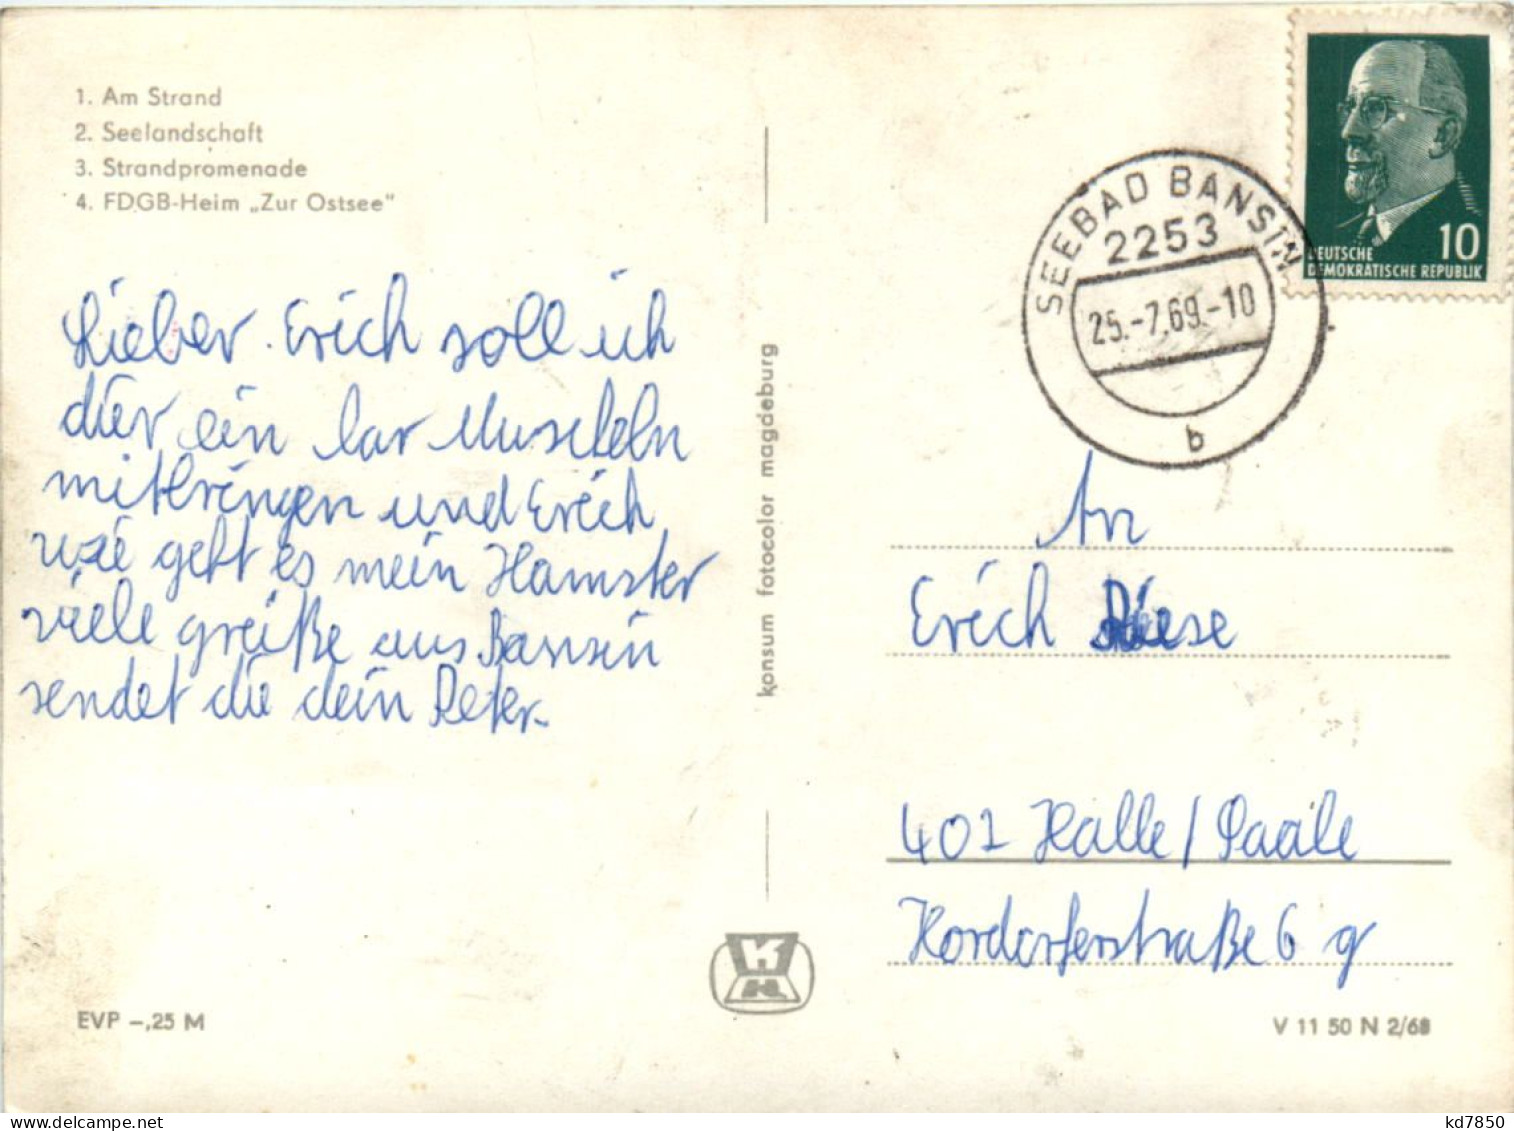 1. Am Strand
2. Seelandschaft
3. Strandpromenade
4. FDGB-Heim „Zur Ostsee"
Lieber Erich soll ich
dir ein Muscheln
mitbringen und Erich
wie geht es mein Hamster
viele greiße aus Bansin
sendet dir dein Peter.
EVP -,25 M
konsum fotocolor magdeburg
SEEBAD BANSIN
2253
25.-7.69.-10
b
10
DEUTSCHE
DEMOKRATISCHE REPUBLIK
An
Erich Diese
401 Halle/Saale
Hordorferstraße 6 g
V 11 50 N 2/68
kd7850